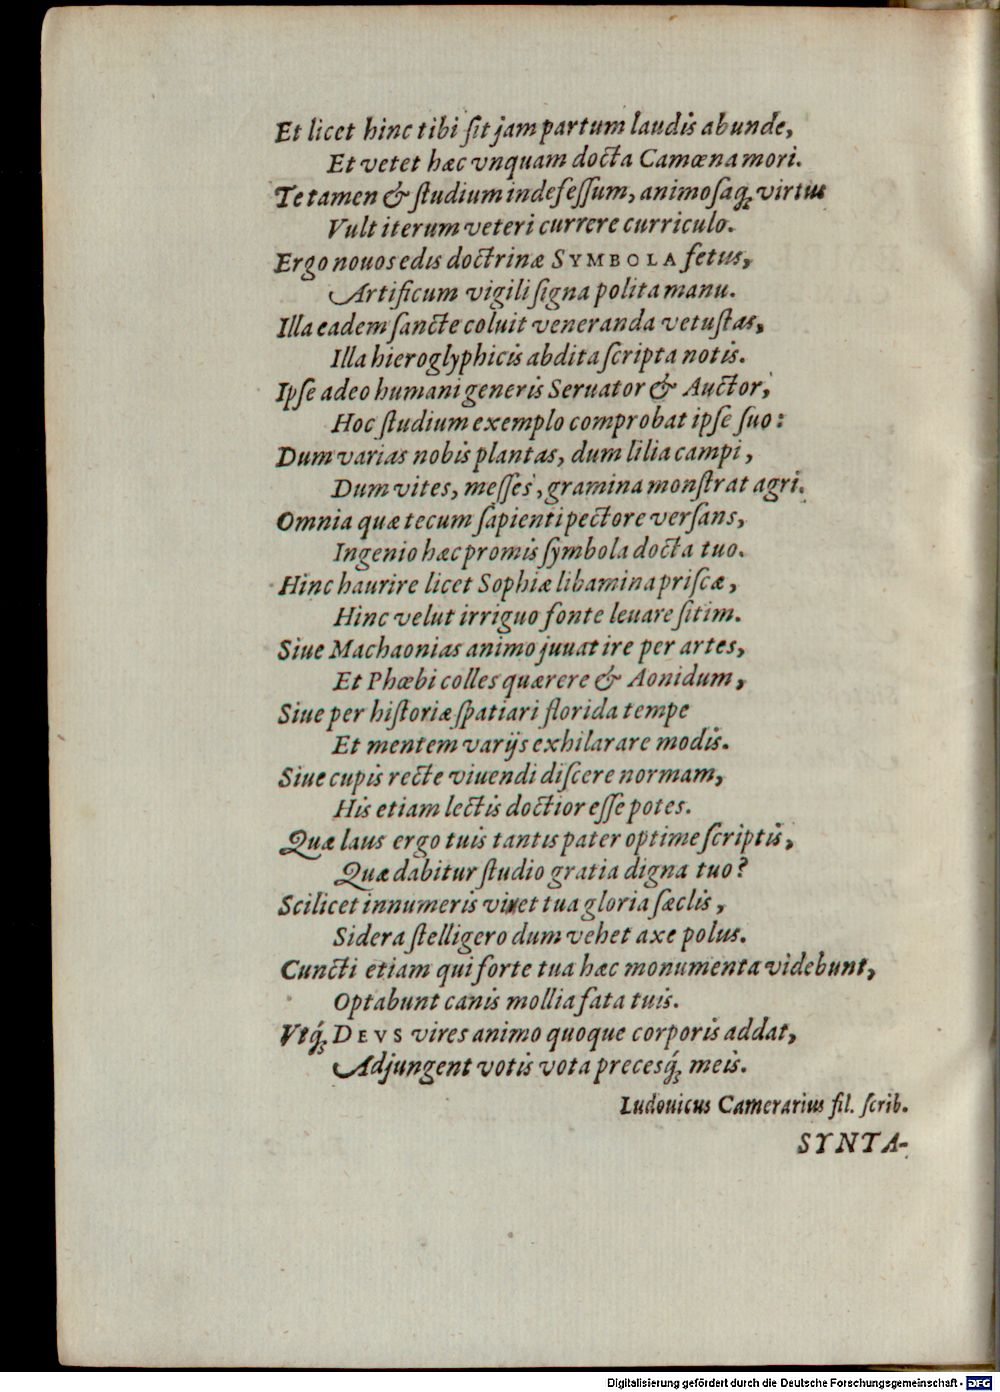 Et licet hinc tibi ſit jam partum laudis abunde,
Et vetet hæc vnquam docta Camœna mori.
Te tamen & ſtudium indefeſſum, animoſaq; virtus
Vult iterum veteri currere curriculo.
Ergo novos edis doctrinæ SYMBOLA fetus,
Artificum vigili ſigna polita manu.
Illa eadem ſancte coluit veneranda vetuſtas,
Illa hieroglyphicis abdita ſcripta notis.
Ipſe adeo humani generis Seruator & Auctor,
Hoc ſtudium exemplo comprobat ipſe ſuo:
Dum varias nobis plantas, dum lilia campi,
Dum vites, meſſes, gramina monſtrat agri.
Omnia quæ tecum ſapienti pectore verſans,
Ingenio hæc promis ſymbola docta tuo.
Hinc haurire licet Sophiæ libamina priſcæ,
Hinc velut irriguo fonte leuare ſitim.
Siue Machaonias animo juuat ire per artes,
Et Phœbi colles quærere & Aonidum,
Siue per hiſtoriæ ſpatiari florida tempe
Et mentem varijs exhilarare modis.
Siue cupis recte viuendi diſcere normam,
His etiam lectis doctior eſſe potes.
Quæ laus ergo tuis tantis pater optime ſcriptis,
Quæ dabitur ſtudio gratia digna tuo?
Scilicet innumeris viuet tua gloria ſæclis,
Sidera ſtelligero dum vehet axe polus.
Cuncti etiam qui forte tua hæc monumenta videbunt,
Optabunt canis mollia fata tuis.
Vtq́; DEVS vires animo quoque corporis addat,
Adjungent votis vota precesq́; meis.
Ludouicus Camerarius fil. ſcrib.
SYNTA-
Digitalisierung gefördert durch die Deutsche Forschungsgemeinschaft - DFG